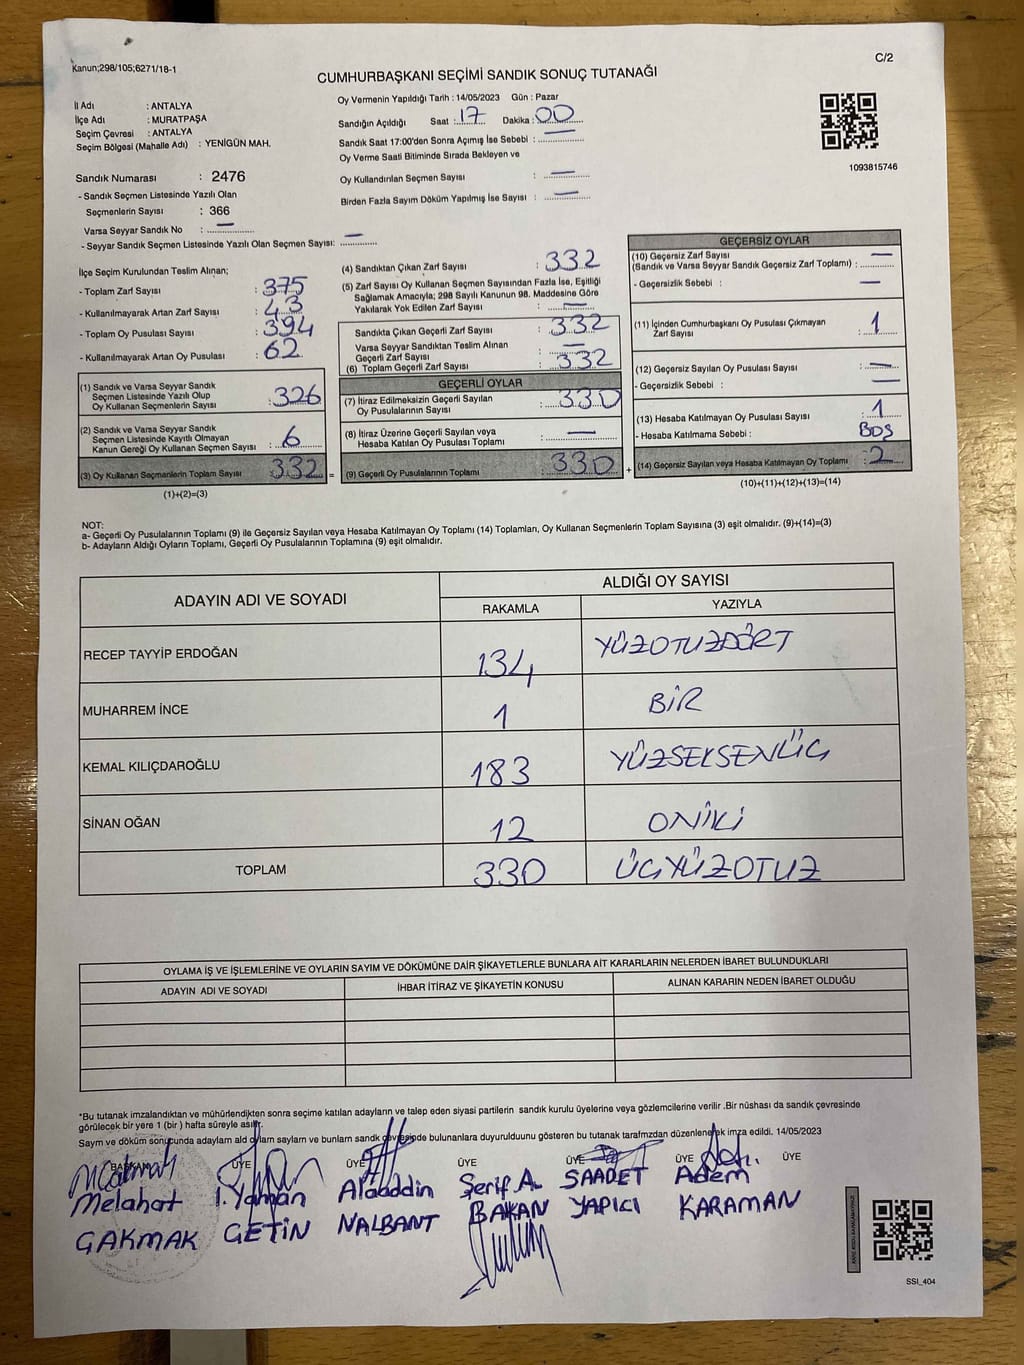 Kanun;298/105;6271/18-1
C/2
CUMHURBAŞKANI SEÇİMİ SANDIK SONUÇ TUTANAĞI
İl Adı : ANTALYA
İlçe Adı : MURATPAŞA
Seçim Çevresi : ANTALYA
Seçim Bölgesi (Mahalle Adı) : YENİGÜN MAH.
Sandık Numarası : 2476
- Sandık Seçmen Listesinde Yazılı Olan
Seçmenlerin Sayısı : 366
Varsa Seyyar Sandık No : —
- Seyyar Sandık Seçmen Listesinde Yazılı Olan Seçmen Sayısı: —
Oy Vermenin Yapıldığı Tarih : 14/05/2023 Gün : Pazar
Sandığın Açıldığı Saat : 17 Dakika : 00
Sandık Saat 17:00'den Sonra Açımış İse Sebebi : —
Oy Verme Saati Bitiminde Sırada Bekleyen ve
Oy Kullandırılan Seçmen Sayısı : —
Birden Fazla Sayım Döküm Yapılmış İse Sayısı : —
1093815746
İlçe Seçim Kurulundan Teslim Alınan;
- Toplam Zarf Sayısı : 375
- Kullanılmayarak Artan Zarf Sayısı : 43
- Toplam Oy Pusulası Sayısı : 394
- Kullanılmayarak Artan Oy Pusulası : 62
(1) Sandık ve Varsa Seyyar Sandık
Seçmen Listesinde Yazılı Olup
Oy Kullanan Seçmenlerin Sayısı : 326
(2) Sandık ve Varsa Seyyar Sandık
Seçmen Listesinde Kayıtlı Olmayan
Kanun Gereği Oy Kullanan Seçmen Sayısı : 6
(3) Oy Kullanan Seçmenlerin Toplam Sayısı : 332 =
(1)+(2)=(3)
(4) Sandıktan Çıkan Zarf Sayısı : 332
(5) Zarf Sayısı Oy Kullanan Seçmen Sayısından Fazla İse, Eşitliği
Sağlamak Amacıyla; 298 Sayılı Kanunun 98. Maddesine Göre
Yakılarak Yok Edilen Zarf Sayısı : —
Sandıkta Çıkan Geçerli Zarf Sayısı : 332
Varsa Seyyar Sandıktan Teslim Alınan
Geçerli Zarf Sayısı : —
(6) Toplam Geçerli Zarf Sayısı : 332
GEÇERLİ OYLAR
(7) İtiraz Edilmeksizin Geçerli Sayılan
Oy Pusulalarının Sayısı : 330
(8) İtiraz Üzerine Geçerli Sayılan veya
Hesaba Katılan Oy Pusulası Toplamı : —
(9) Geçerli Oy Pusulalarının Toplamı : 330 +
GEÇERSİZ OYLAR
(10) Geçersiz Zarf Sayısı
(Sandık ve Varsa Seyyar Sandık Geçersiz Zarf Toplamı) : —
- Geçersizlik Sebebi : —
(11) İçinden Cumhurbaşkanı Oy Pusulası Çıkmayan
Zarf Sayısı : 1
(12) Geçersiz Sayılan Oy Pusulası Sayısı : —
- Geçersizlik Sebebi : —
(13) Hesaba Katılmayan Oy Pusulası Sayısı : 1
- Hesaba Katılmama Sebebi : BOŞ
(14) Geçersiz Sayılan veya Hesaba Katılmayan Oy Toplamı : 2
(10)+(11)+(12)+(13)=(14)
NOT:
a- Geçerli Oy Pusulalarının Toplamı (9) ile Geçersiz Sayılan veya Hesaba Katılmayan Oy Toplamı (14) Toplamları, Oy Kullanan Seçmenlerin Toplam Sayısına (3) eşit olmalıdır. (9)+(14)=(3)
b- Adayların Aldığı Oyların Toplamı, Geçerli Oy Pusulalarının Toplamına (9) eşit olmalıdır.
ADAYIN ADI VE SOYADI ALDIĞI OY SAYISI
RAKAMLA YAZIYLA
RECEP TAYYİP ERDOĞAN 134 YÜZOTUZDÖRT
MUHARREM İNCE 1 BİR
KEMAL KILIÇDAROĞLU 183 YÜZSEKSENÜÇ
SİNAN OĞAN 12 ONİKİ
TOPLAM 330 ÜÇYÜZOTUZ
OYLAMA İŞ VE İŞLEMLERİNE VE OYLARIN SAYIM VE DÖKÜMÜNE DAİR ŞİKAYETLERLE BUNLARA AİT KARARLARIN NELERDEN İBARET BULUNDUKLARI
ADAYIN ADI VE SOYADI İHBAR İTİRAZ VE ŞİKAYETİN KONUSU ALINAN KARARIN NEDEN İBARET OLDUĞU
*Bu tutanak imzalandıktan ve mühürlendikten sonra seçime katılan adayların ve talep eden siyasi partilerin sandık kurulu üyelerine veya gözlemcilerine verilir .Bir nüshası da sandık çevresinde
görülecek bir yere 1 (bir ) hafta süreyle asılır.
Sayım ve döküm sonucunda adaylarn ald oylarn sayların ve bunların sandık çevresinde bulunanlara duyurulduunu gösteren bu tutanak tarafmzdan düzenlenerek imza edildi. 14/05/2023
BAŞKAN ÜYE ÜYE ÜYE ÜYE ÜYE ÜYE
Melahat I.Yaman Alaaddin Şerif A. SAADET Adem
ÇAKMAK ÇETİN NALBANT BAKAN YAPICI KARAMAN
SSI_404